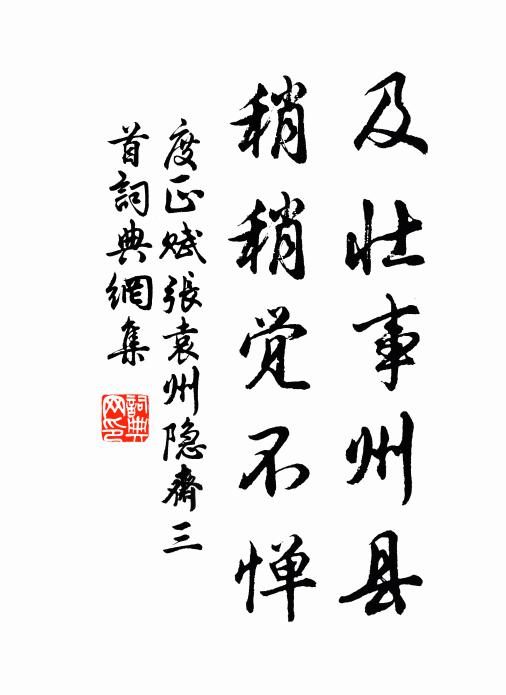 及壮事州县
稍稍觉不惮
度正赋張袁州隐齋三
首詞典網集
詞典
网印